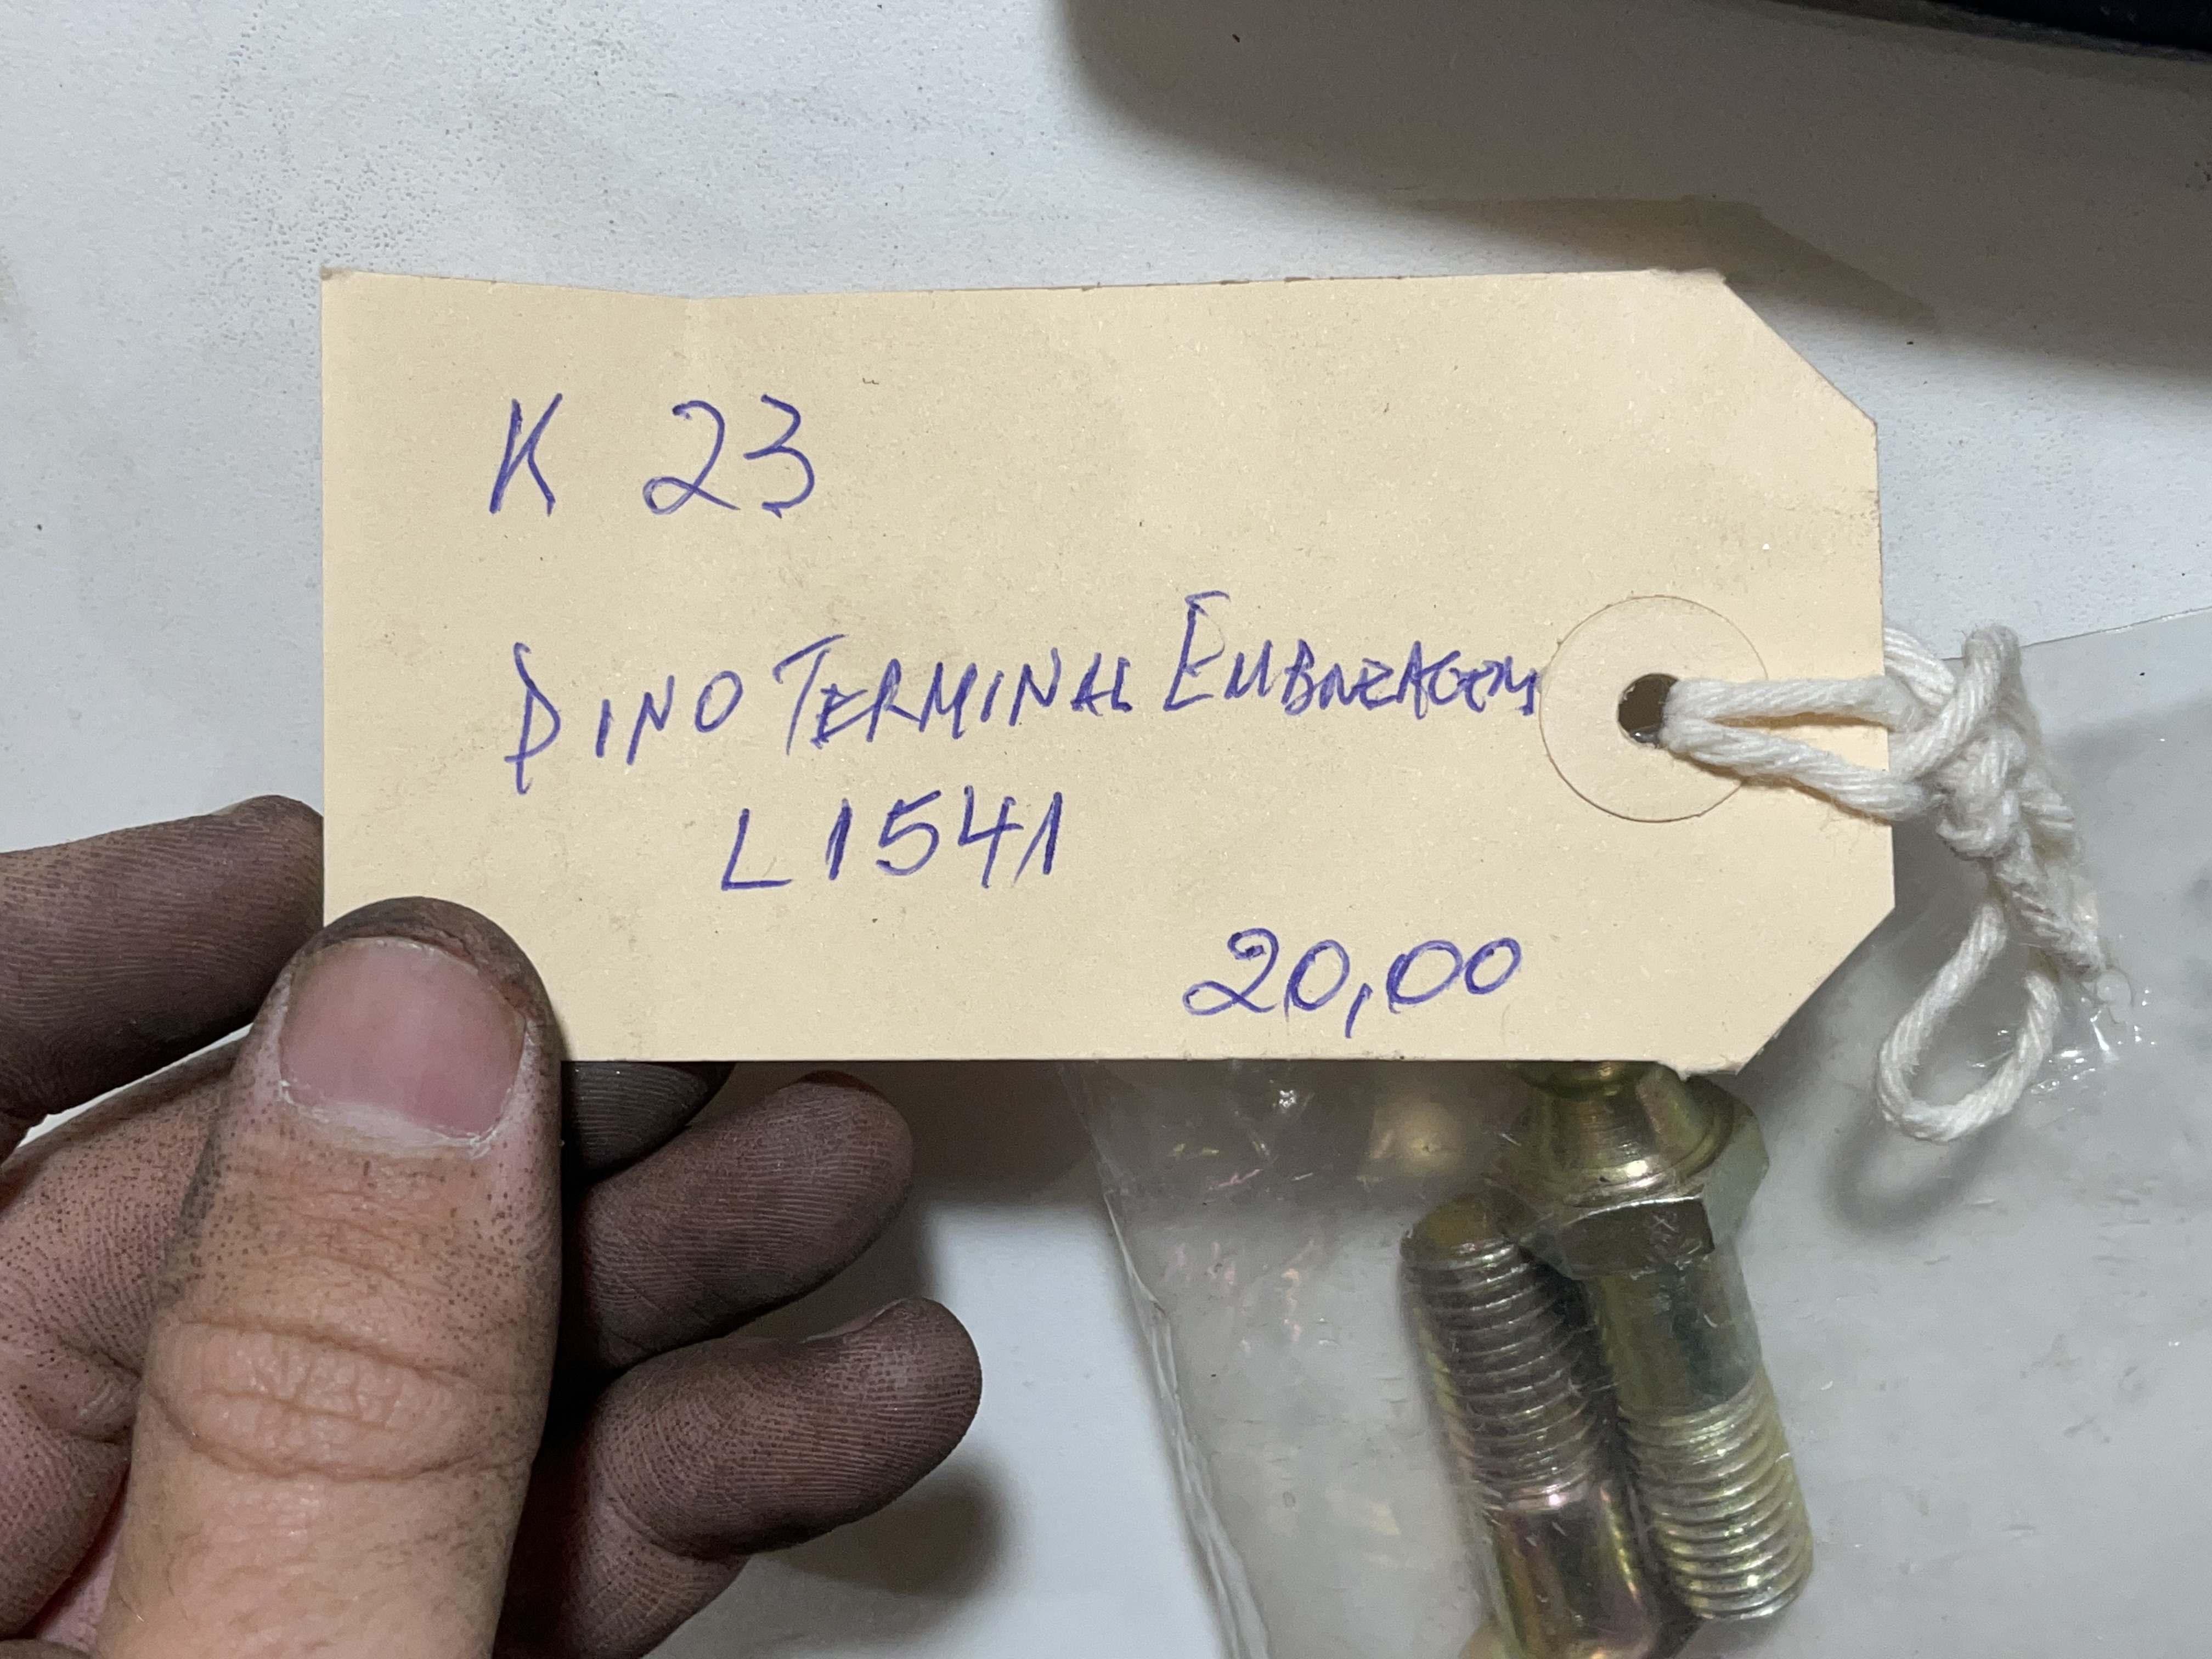 K 23
PINO TERMINAL EMBREAGEM
L 1541
20,00